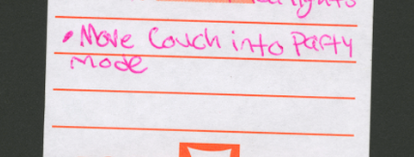 lights
• Move Couch into Party
mode